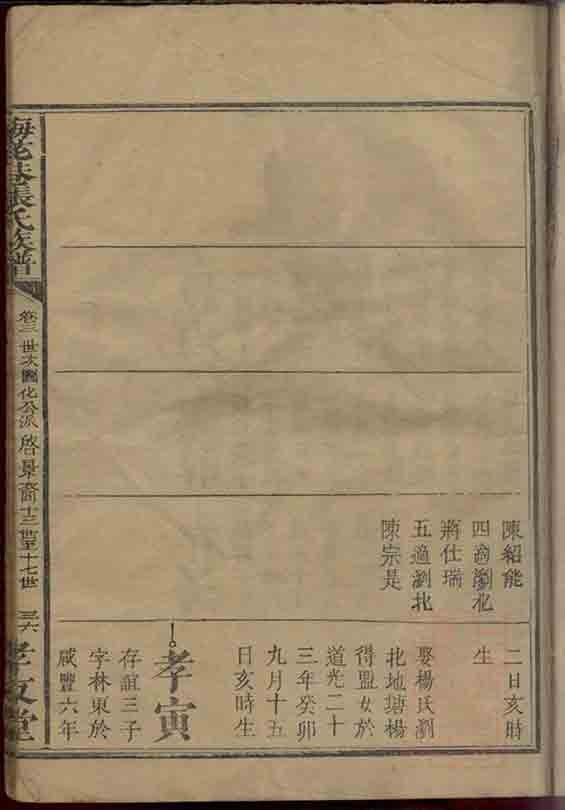 陳紹能
四適瀏北
蔣仕瑞
五適瀏北
陳宗是
二日亥時
生
娶楊氏瀏
北地塘楊
得盟女於
道光二十
三年癸卯
九月十五
日亥時生
孝寅
存誼三子
字林東於
咸豐六年
梅花巷張氏族譜
卷三 世次圖化公派 啓景裔十三世至十七世 三六
孝友堂